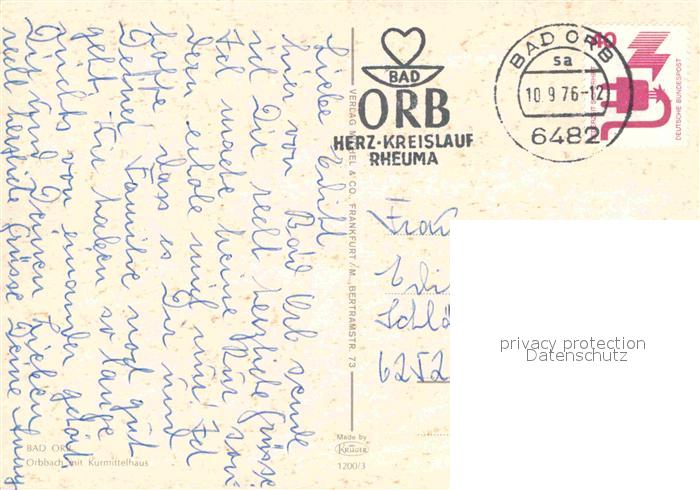 Liebe Edith
hier von Bad Orb sende
ich Dir recht herzliche Grüsse
Ich mache keine Kur son-
dern erhole mich nur. Ich
hoffe dass es Dir und
Deiner Familie noch gut
geht. Wir haben so lange
nichts von einander gehört
Dir und Deinen Lieben
recht herzliche Grüsse Deine Anny
BAD ORB
Orbbach mit Kurmittelhaus
VERLAG MICHEL & CO., FRANKFURT/M., BERTRAMSTR. 73
Made by
KRÜGER
1200/3
BAD
ORB
HERZ-KREISLAUF
RHEUMA
BAD ORB
sa
10.9.76-12
6482
40
DEUTSCHE BUNDESPOST
Frau
Schlo
6252
privacy protection
Datenschutz